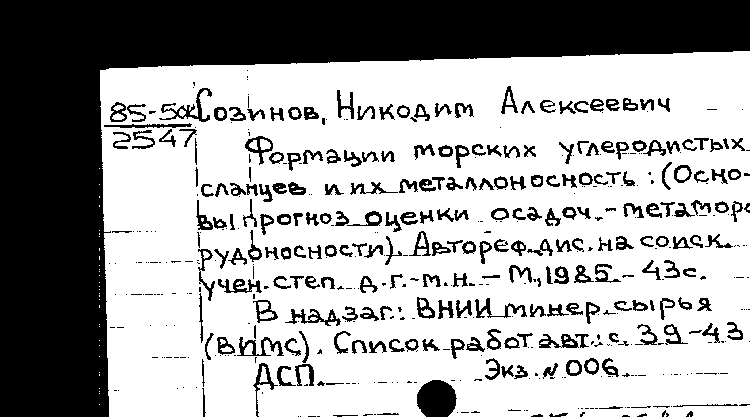 85-5ск
2547
Созинов, Никодим Алексеевич
Формации морских углеродистых
сланцев и их металлоносность : (Осно-
вы прогноз. оценки осадоч.-метаморф
рудоносности). Автореф. дис. на соиск.
учен. степ. д.г.-м.н. - М., 1985. - 43с.
В надзаг.: ВНИИ минер. сырья
(ВИМС). Список работ авт.: с. 39-43
ДСП. Экз. № 006.